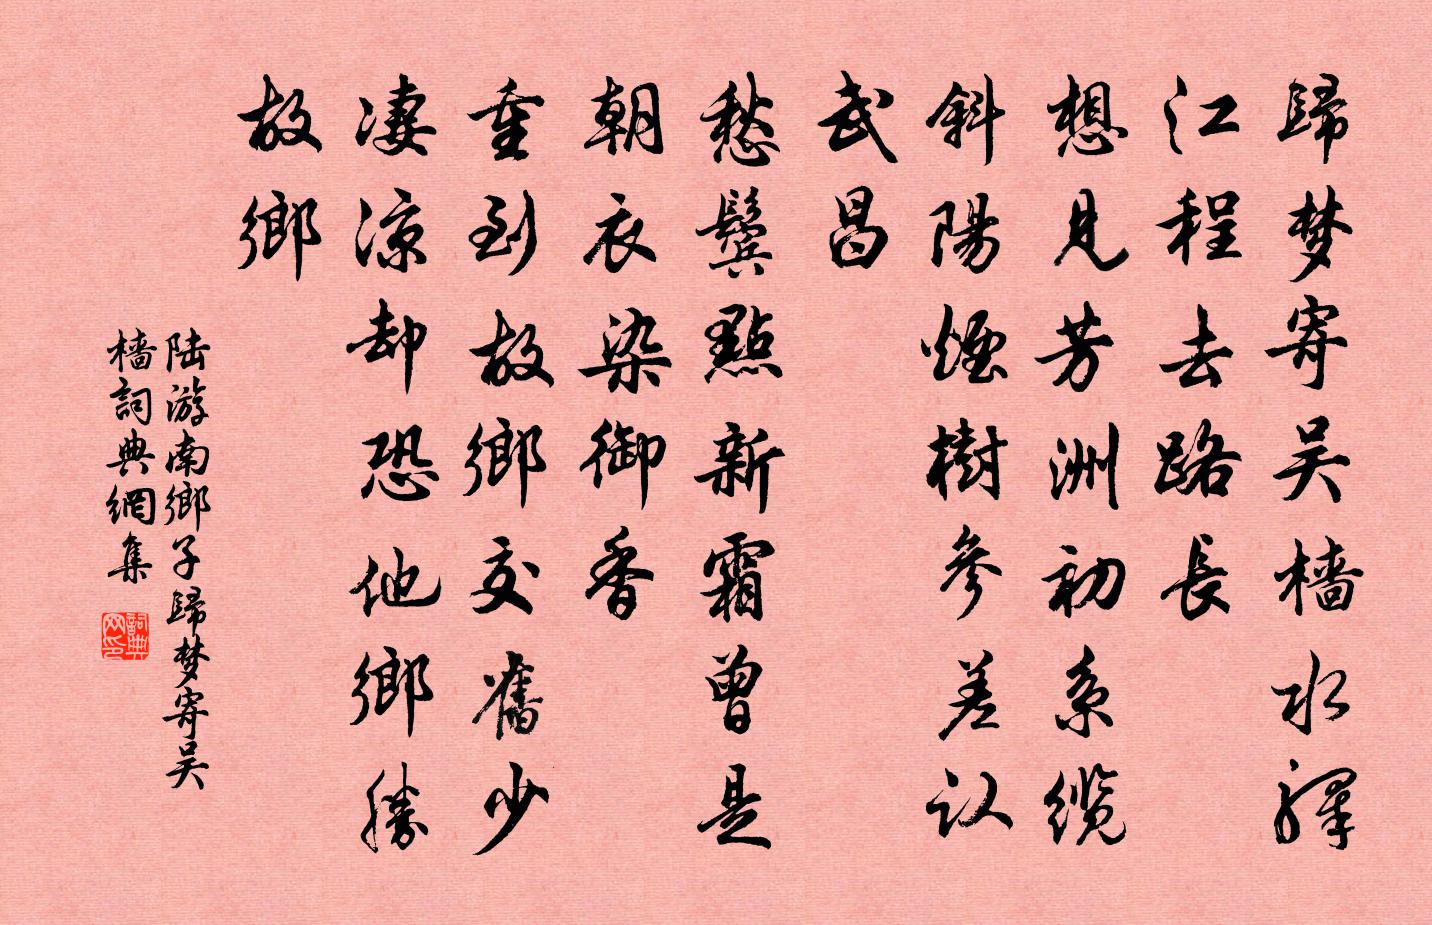 歸梦寄吴檣水驛
江程去路長
想見芳洲初系缆
斜陽煙樹參差认
武昌
愁鬓點新霜曾是
朝衣染御香
重到故鄉交舊少
凄凉却恐他鄉勝
故鄉
陆游南鄉子歸梦寄吴
檣詞典網集
詞典
网印